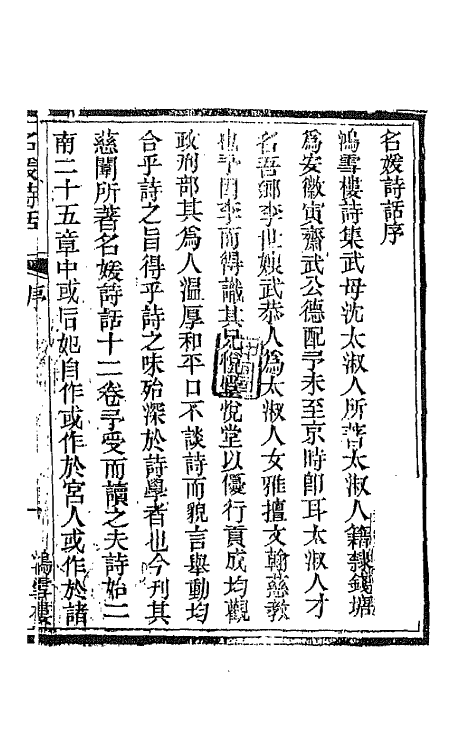 名媛詩話序
鴻雪樓詩集武母沈太淑人所著太淑人籍隸錢塘
爲安徽寅齋武公德配予未至京時卽耳太淑人才
名吾鄉李世嫂武恭人爲太淑人女雅擅文翰慈教
也予因李而得識其兄悅堂悅堂以優行貢成均觀
政刑部其爲人溫厚和平口不談詩而貌言舉動均
合乎詩之旨得乎詩之味殆深於詩學者也今刊其
慈闈所著名媛詩話十二卷予受而讀之夫詩始二
南二十五章中或后妃自作或作於宮人或作於諸
名媛詩話 序 一 鴻雪樓